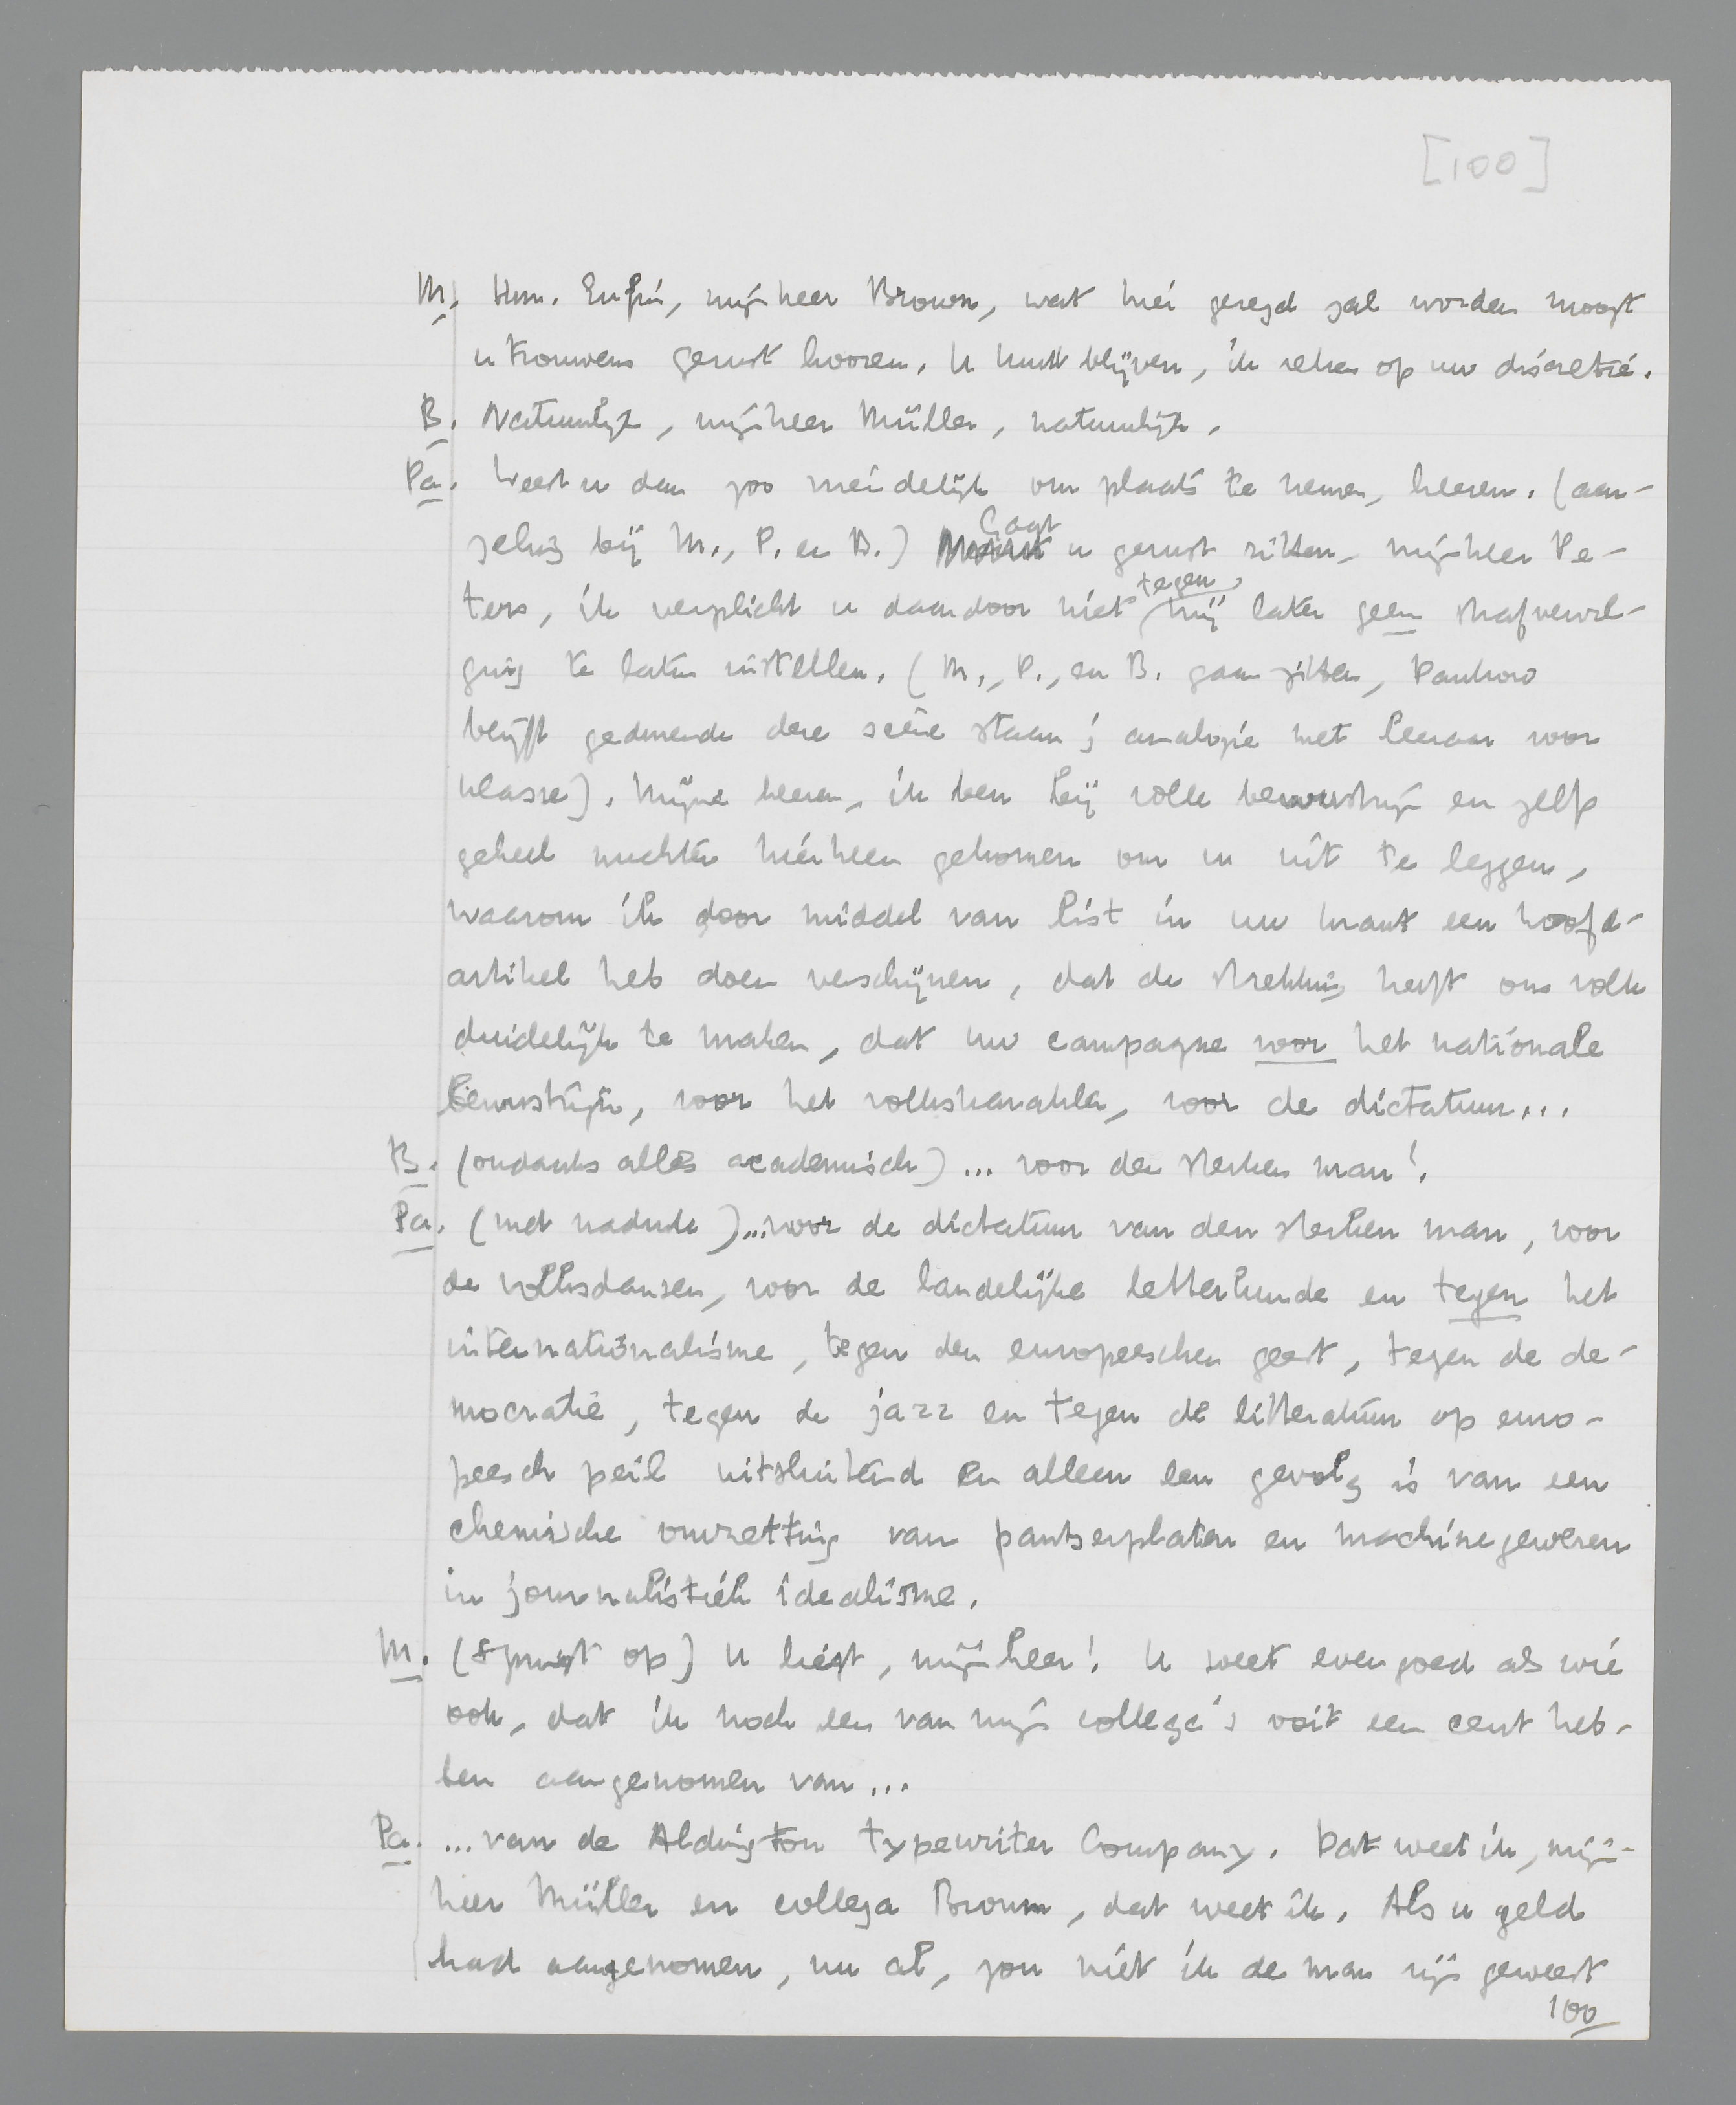 [100]
M. Hm. Enfin, mijnheer Brown, wat hier gezegd zal worden moogt
u trouwens gerust hooren. U kunt blijven, ik reken op uw discretie.
B. Natuurlijk, mijnheer Müller, natuurlijk.
Pa. Weest u dan zoo vriendelijk om plaats te nemen, heeren. (aar-
zeling bij M., P. en B.) Gaat u gerust zitten, mijnheer Pe-
ters, ik verplicht u daardoor niet tegen mij later geen strafvervol-
ging te laten instellen. (M., P., en B. gaan zitten, Pankow
blijft gedurende deze scène staan; analogie met leeraar voor
klasse). Mijne heeren, ik ben bij volle bewustzijn en zelfs
geheel nuchter hierheen gekomen om u uit te leggen,
waarom ik door middel van list in uw krant een hoofd-
artikel heb doen verschijnen, dat de strekking heeft ons volk
duidelijk te maken, dat uw campagne voor het nationale
bewustzijn, voor het volkskarakter, voor de dictatuur...
B. (ondanks alles academisch) ... voor den sterken man!
Pa. (met nadruk)...voor de dictatuur van den sterken man, voor
de volksdansen, voor de landelijke letterkunde en tegen het
internationalisme, tegen den europeeschen geest, tegen de de-
mocratie, tegen de jazz en tegen de litteratuur op euro-
peesch peil uitsluitend en alleen een gevolg is van een
chemische omzetting van pantserplaten en machinegeweren
in journalistiek idealisme.
M. (springt op) U liegt, mijnheer! U weet evengoed als wie
ook, dat ik noch een van mijn collega's ooit een cent heb-
ben aangenomen van...
Pa. ...van de Aldington Typewriter Company. Dat weet ik, mijn-
heer Müller en collega Brown, dat weet ik. Als u geld
had aangenomen, nu al, zou niet ik de man zijn geweest
100